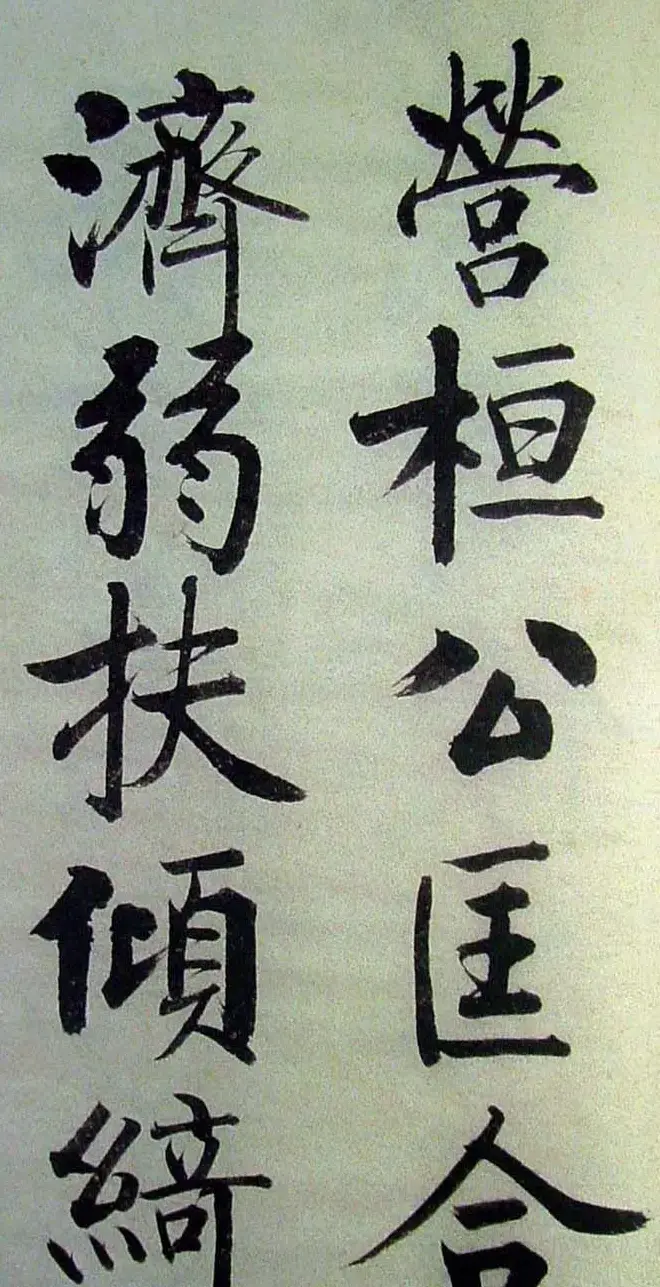 營桓公匡合
濟弱扶傾綺